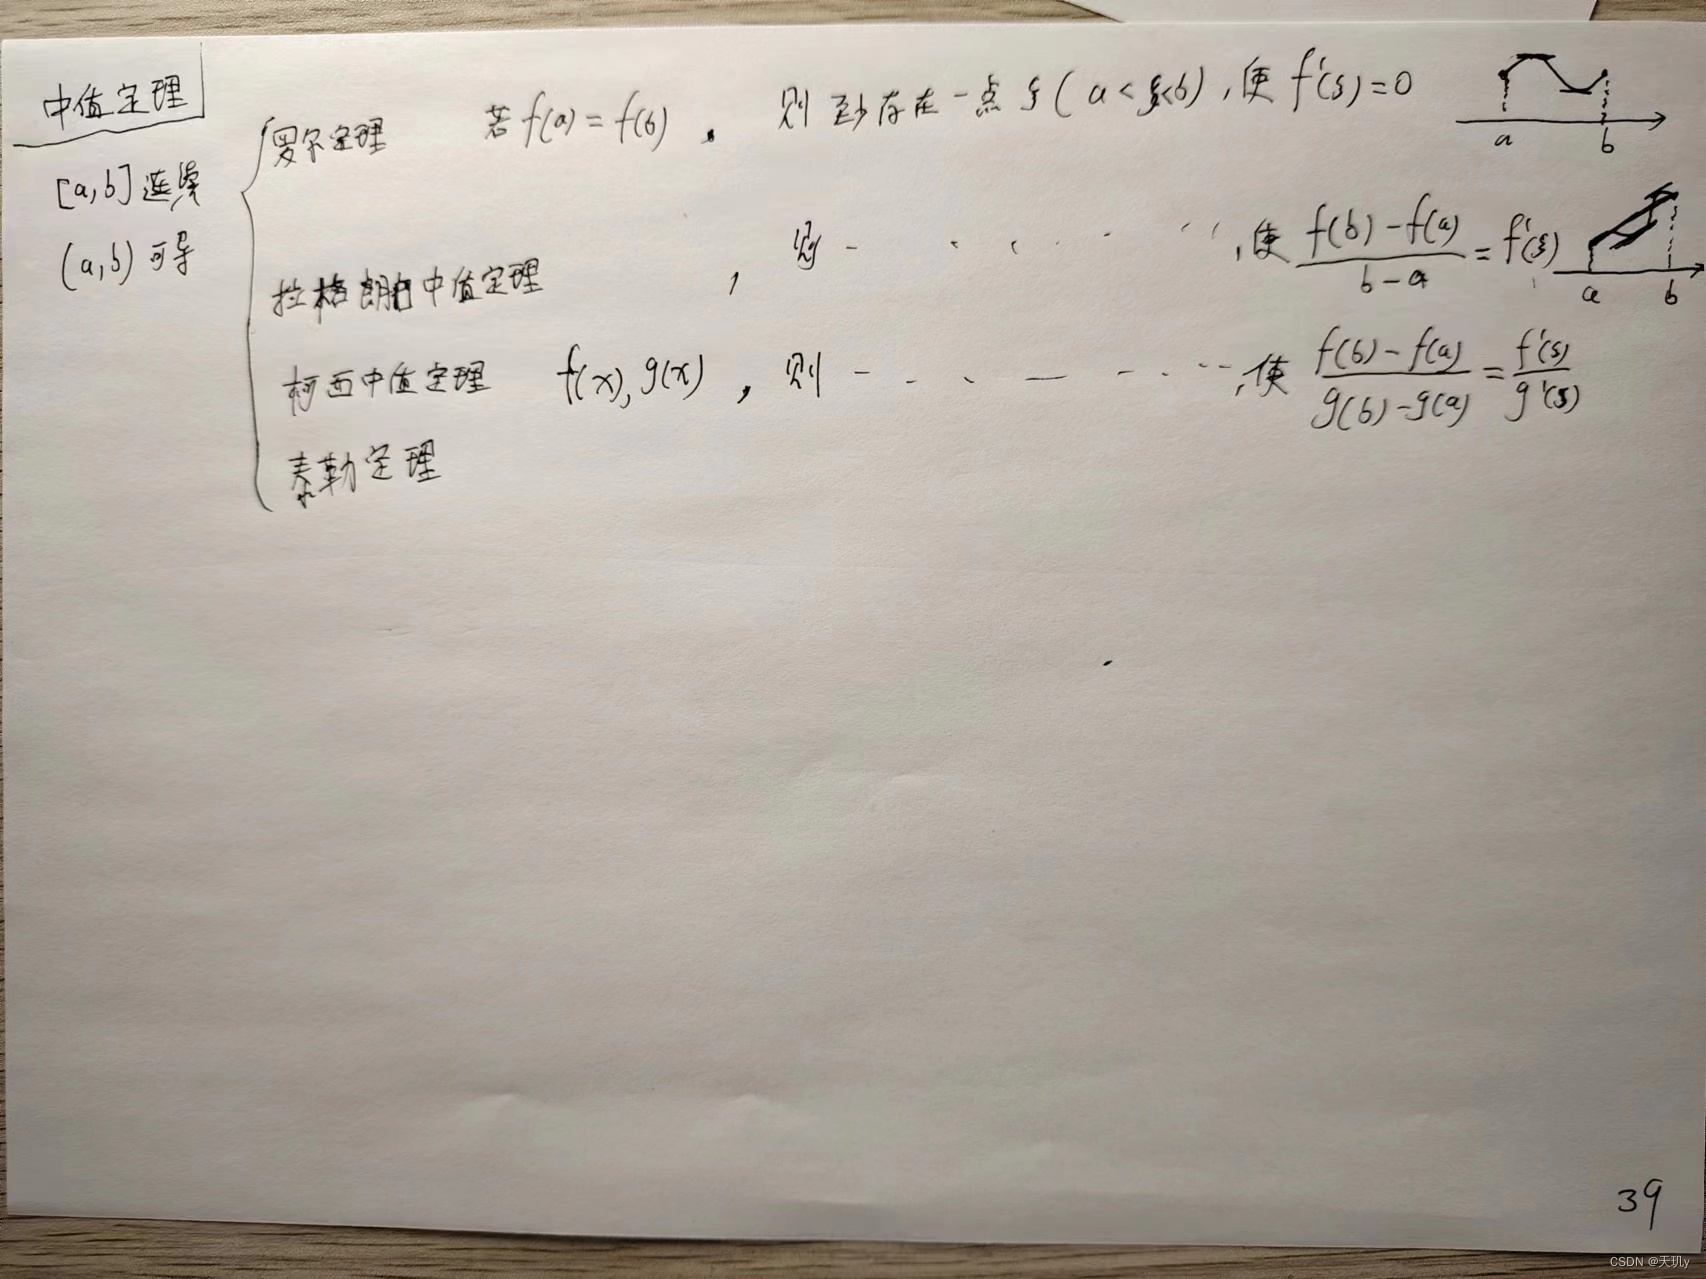 中值定理
[a,b]连续
(a,b)可导
罗尔定理 若f(a)=f(b), 则至少存在一点ξ(a<ξ<b),使f'(ξ)=0
a b
拉格朗日中值定理 , 则- · · · · · · ,使 \frac{f(b)-f(a)}{b-a}=f'(ξ)
a b
柯西中值定理 f(x),g(x) , 则- · · — · · · · ,使 \frac{f(b)-f(a)}{g(b)-g(a)}=\frac{f'(ξ)}{g'(ξ)}
泰勒定理
39
CSDN @天玑y